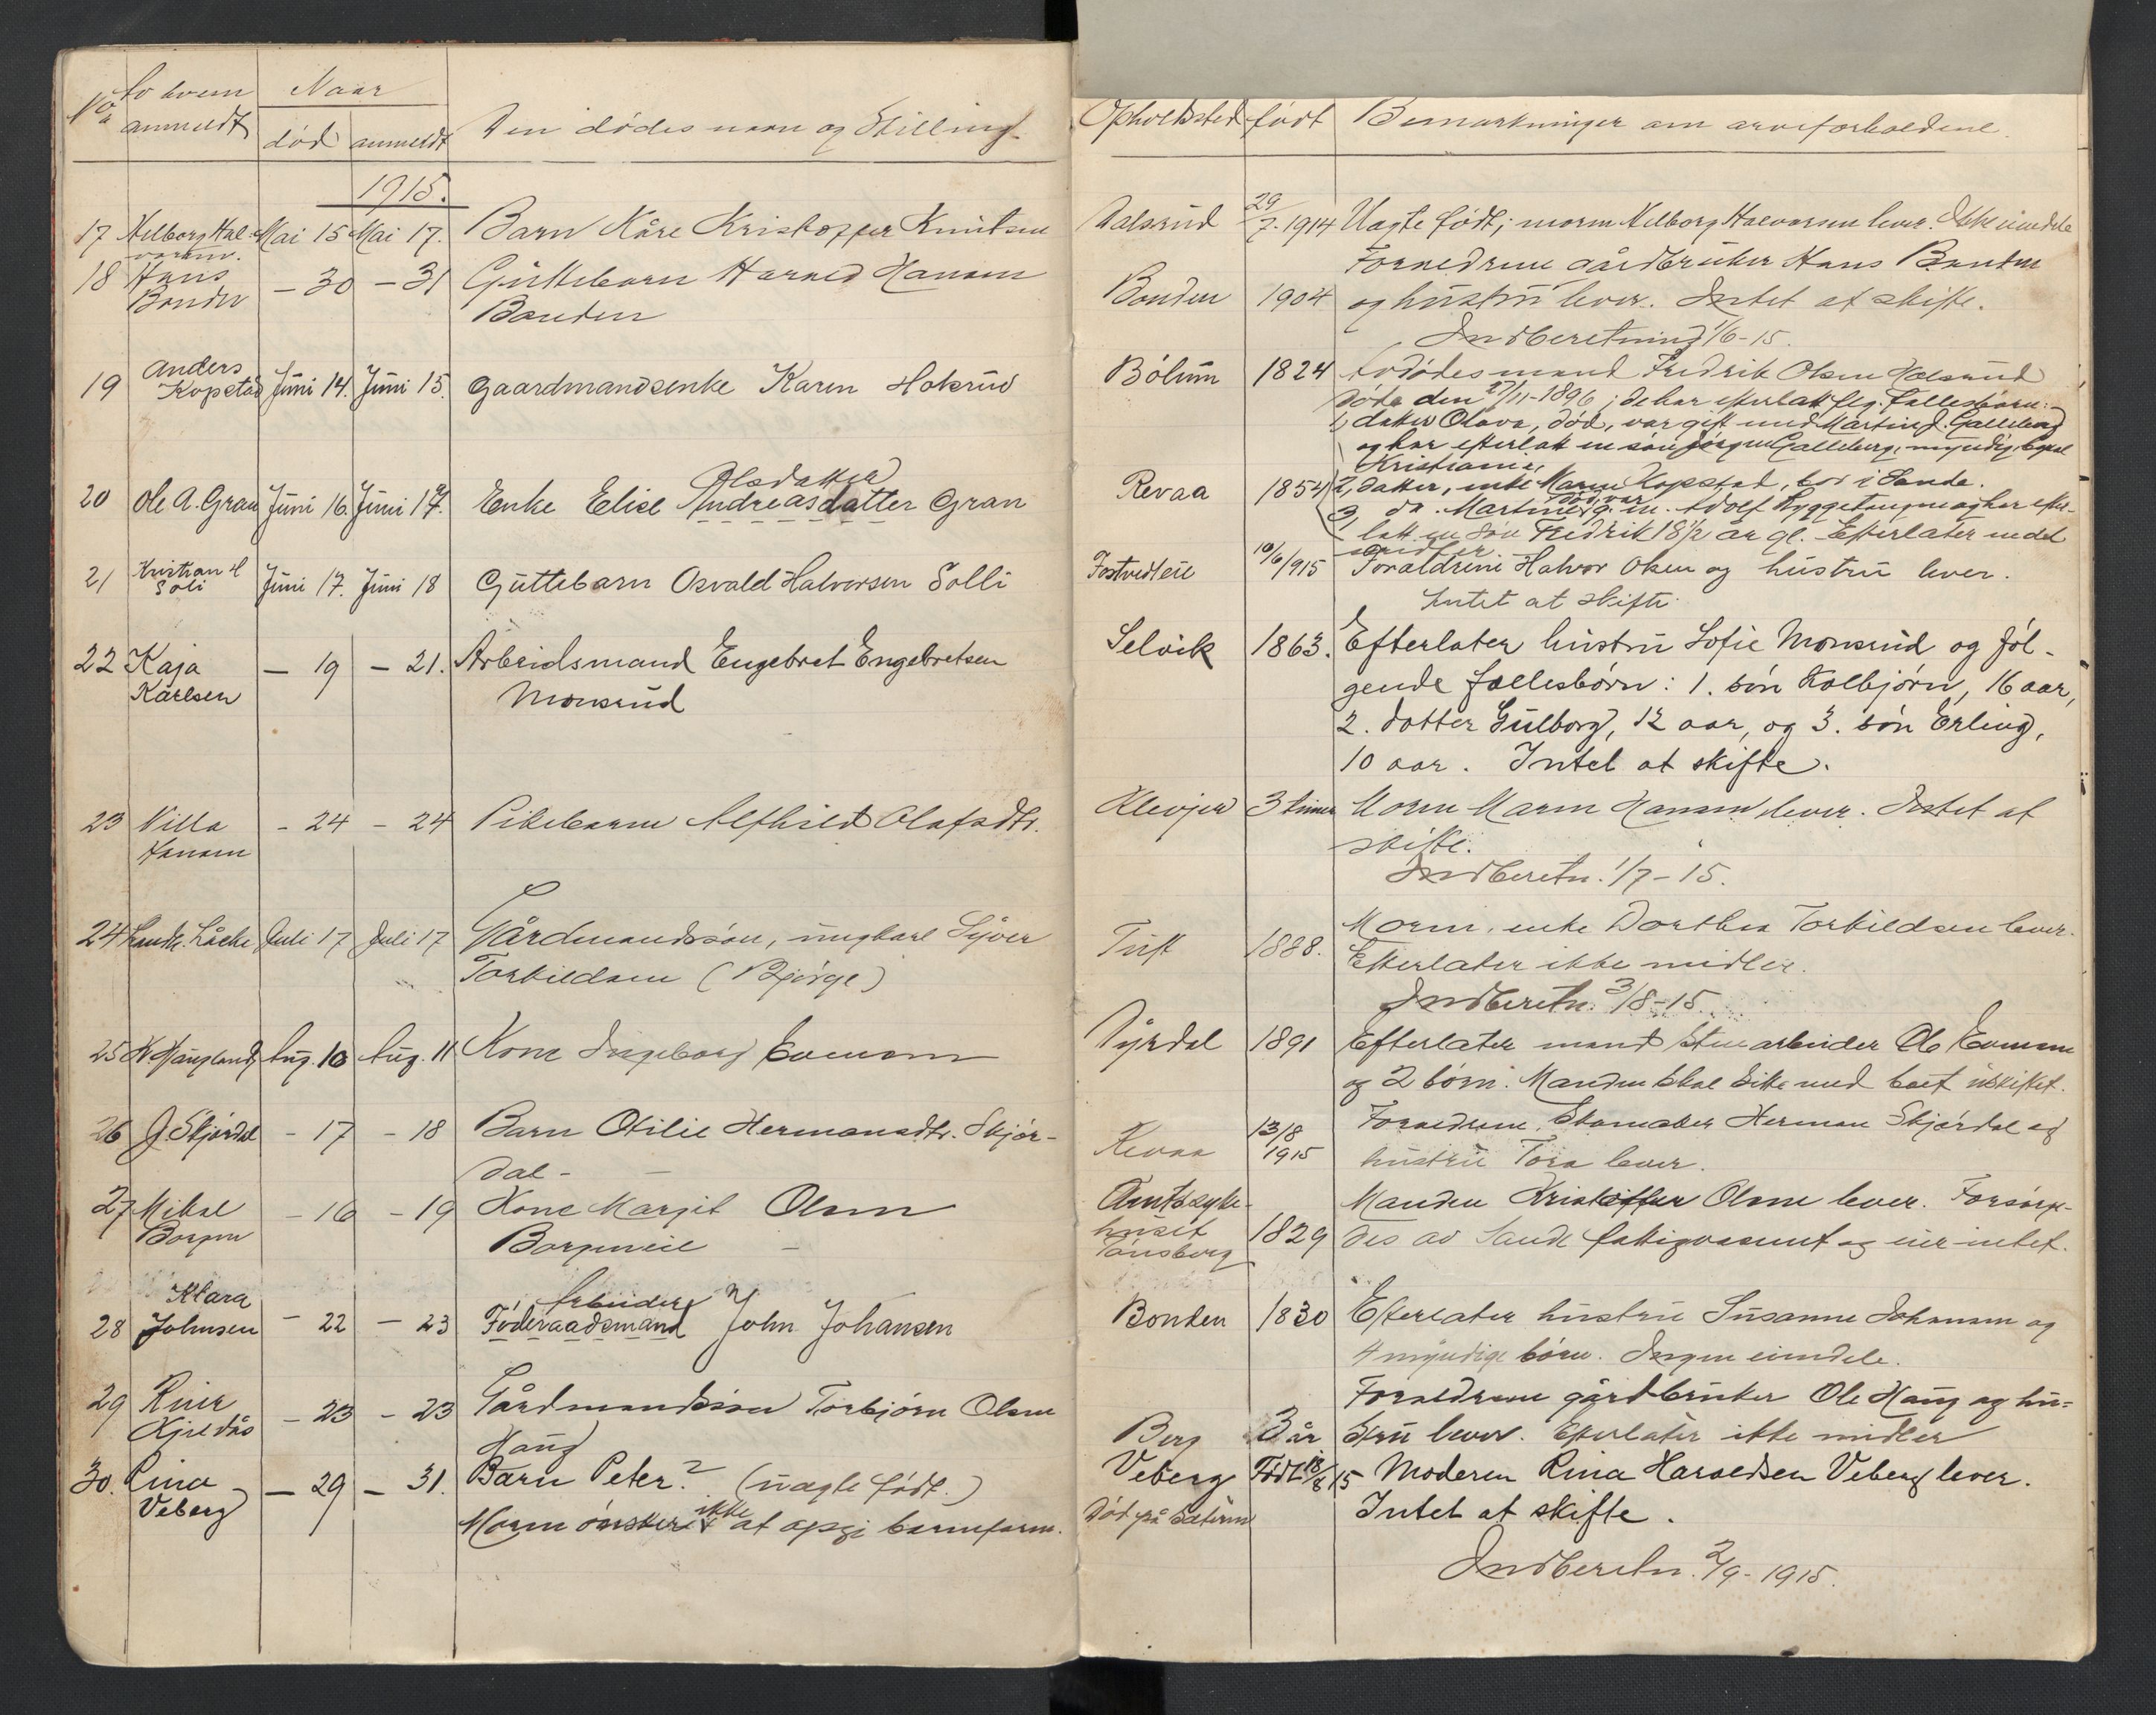 No
Av hvem
anmeldt
Naar
død anmeldt
Den dødes navn og Stilling.
1915.
17 Helborg Hal-
vorsen. Mai 15 Mai 17. Barn Kåre Kristoffer Knutsen
18 Hans
Bonden — 30 — 31 Guttebarn Harald Hansen
Bonden
19 Anders
Kopstad Juni 14. Juni 15. Gaardmandsenke Karen Holsrud
Olsdatter
20 Ole A. Gran Juni 16. Juni 17. Enke Elise Andreasdatter Gran
21 Kristian H
Soli Juni 17. Juni 18 Guttebarn Osvald Halvorsen Solli
22 Kaja
Karlsen — 19 — 21. Arbeidsmand Engebret Engebretsen
Monsrud
23 Nilla
Hansen - 24 - 24 Pikebarn Alfhild Olafsdtr.
24 Lensm. Låche Juli 17 Juli 17 Gårdmandssøn, ungkarl Syver
Torkildsen (Bjørge)
25 K Haugland Aug. 10 Aug. 11 Kone Ingeborg Evensen
26 J. Skjørdal - 17 - 18 Barn Otilie Hermansdtr. Skjør-
dal -
27 Mikal
Borgen - 16 - 19 Kone Margit Olsen
Borgeneie -
28 Klara
Johnsen - 22 - 23 Arbeider
Føderaadsmand John Johansen
29 Riner
Kjeldås - 23 - 23 Gårdmandssøn Torbjørn Olsen
Haug
30. Rina
Veberg — 29 — 31. Barn Peter? (uægte født.)
Moren ønsker ikke at opgi barnefaren.
Opholdssted født Bemærkninger om arveforholdene.
Dalsrud 29/7-1914 Uægte født; moren Helborg Halvorsen lever. Ikke eiendele
Forældrene gårdbruker Hans Bonden
Bonden 1904 og hustru lever. Intet at skifte.
Indberetning 1/6-15.
Bólum 1824 Avdødes mand Fredrik Olsen Holsrud
døde den 27/11-1896; de har efterlatt flg. fællesbørn:
1, datter Olava, død, var gift med Martin J. Galleberg
og har efterlatt en søn Jørgen Galleberg, myndig, bopæl
Kristiania,
Revaa 1854 2, datter, enke Maren Kopstad, bor i Sande.
3, do. Martine, død, var g. m. Adolf Hyggetangen og har efter-
latt en søn Fredrik 18 1/2 år gl. Efterlater endel
midler
Fostvedteie 10/6/915 Foraldrene Halvor Olsen og hustru lever.
Intet at skifte.
Selvik 1863. Efterlater hustru Sofie Monsrud og føl-
gende fællesbørn: 1. søn Kolbjørn, 16 aar,
2. datter Gulborg, 12 aar, og 3. søn Erling,
10 aar. Intet at skifte.
Klevjer 3 timer Moren Maren Hansen lever. Intet at
skifte.
Indberetn. 1/7-15.
Tuft 1888. Moren, enke Dorthea Torkildsen lever.
Efterlater ikke midler.
Indberetn. 3/8-15.
Dyrdal 1891 Efterlater mand stenarbeider Ole Evensen
og 2 børn. Manden skal sitte med boet uskiftet.
Revaa 13/8 1915 Forældrene, Skomaker Herman Skjørdal og
hustru Tora lever.
Amtssyke-
huset
Tønsberg 1829 Manden Kristoffer Olsen lever. Forsørge-
des av Sande fattigvæsent og eier intet.
Bonden 1830 Efterlater hustru Susanne Johansen og
4 myndige børn. Ingen eiendele.
Forældrene gårdbruker Ole Haug og hu-
Berg 3 år stru lever. Efterlater ikke midler
Veberg Født 13/8 15 Moderen Rina Haroldsen Veberg lever.
Død på Sæteren Intet at skifte.
Indberetn. 2/9-1915.